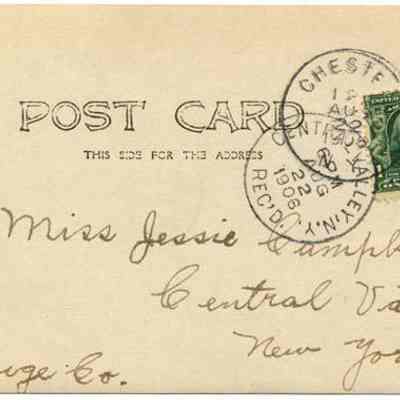 POST CARD
THIS SIDE FOR THE ADDRESS
CHESTE
12
AU
CENTRAL VALLEY, N.Y.
6 PM
AUG
22
1906
REC'D.
Miss Jessie Campb
Central Va
New Yo
nge Co.